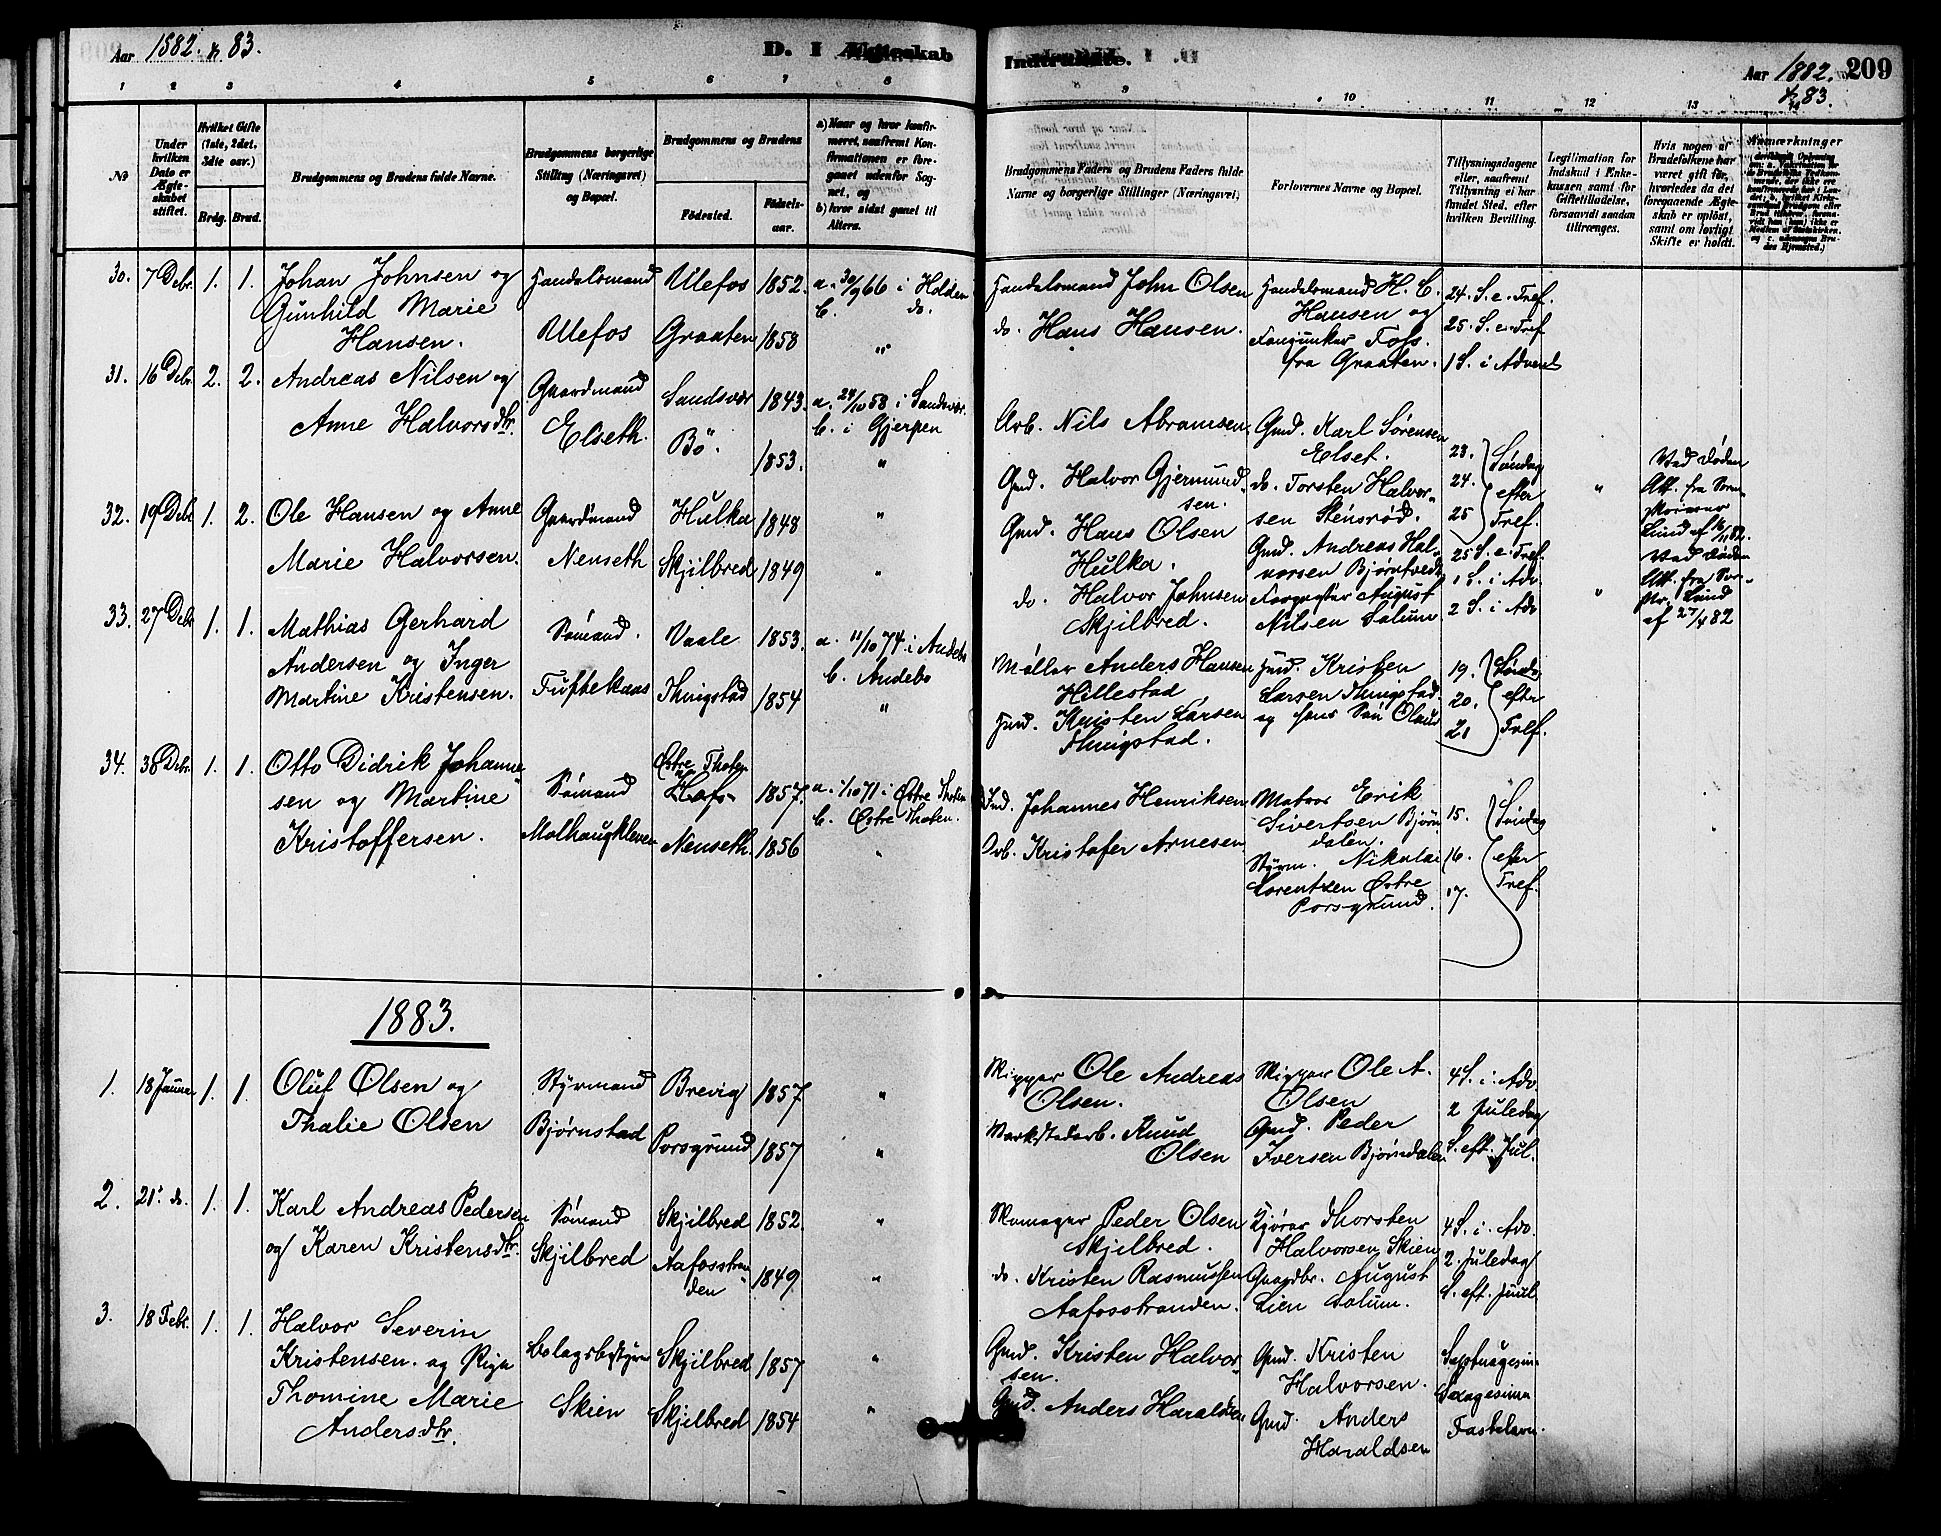 Aar 1882. & 83.
D. I Ægteskab
Indtraadte.
Aar 1882. & 83.
209
1 2 3 4 5 6 7 8
9 10 11 12 13 14
No
Under hvilken Dato er Ægteskabet stiftet.
Hvilket Gifte (1ste, 2det, 3die osv.)
Brdg. Brud.
Brudgommens og Brudens fulde Navne.
Brudgommens borgerlige Stilling (Næringsvei) og Bopæl.
Brudgommens og Brudens
Fødested.
Fødsels-aar.
a) Naar og hvor konfirmeret, saafremt Konfirmationen er foregaaet udenfor Sognet, og
b) hvor sidst gaaet til Alters.
Brudgommens Faders og Brudens Faders fulde Navne og borgerlige Stillinger (Næringsvei)
Forlovernes Navne og Bopæl.
Tillysningsdagene eller, saafremt Tillysning ei har fundet Sted, efter hvilken Bevilling.
Legitimation for Indskud i Enkekassen samt for Giftetilladelse, forsaavidt saadan tiltrænges.
Hvis nogen af Brudefolkene har været gift før, hvorledes da det foregaaende Ægteskab er opløst, samt om lovligt Skifte er holdt.
Anmærkninger
30. 7 Debr. 1. 1. Johan Johnsen og
Gunhild Marie
Hansen.
Handelsmand
Ulefos
Ulefos 1852.
Graaten 1858
a. 30/9 66 i Holden
b. do.
"
Handelsmand John Olsen
do. Hans Hansen.
Handelsmand H. C.
Hansen og
Foss.
fra Graaten.
24. S. e. Tref.
25. S. e. Tref
1 S. i Advent
31. 16 Debr. 2. 2. Andreas Nilsen og
Anne Halvorsdtr.
Gaardmand
Elseth.
Sandsvær 1843.
Bö. 1853.
a. 24/10 58 i Sandsvær.
b. i Gjerpen
"
Arb. Nils Abramsen.
Gmd. Halvor Gjermund-
sen.
Gmd. Karl Sørensen
Elset.
do. Torsten Halvor-
sen Stensrød.
23. Søndag
24. efter
25 Tref.
"
Ved Døden
Att. fra Sorenskriver
Lund af 16/11 82.
32. 19 Debr 1. 2. Ole Hansen og Anne
Marie Halvorsen.
Gaardmand
Nenseth
Hulka 1848
Skjilbred 1849
"
"
Gmd. Hans Olsen
Hulka.
do. Halvor Johnsen
Skjilbred.
Gmd. Andreas Hal-
vorsen Bjørntvedt
August
Nilsen Solum
25 S. e. Tref.
1 S. i Adv.
2 S. i Adv
"
Ved Døden
Att. fra Sor-
skr. Lund
af 27/4 82
33. 27 Debr 1. 1. Mathias Gerhard
Andersen og Inger
Martine Kristensen.
Sömand.
Tuftekaas
Vaale 1853.
Thingstad 1854
a. 11/10 74 i Andebo
b. Andebo
"
Møller Anders Hansen
Hillestad
Hmd. Kristen Larsen
Thingstad.
Hmd. Kristen
Larsen Thingstad
og hans Søn Olaus
19. Sønd.
20. efter
21 Tref.
34. 38 Debr. 1. 1. Otto Didrik Johanne-
sen og Martine
Kristoffersen.
Sömand
Molhaugkleven
Østre Thoten
Hof 1857.
Nenseth. 1856
a. 1/10 71 i Østre Thoten
b. Østre Thoten.
"
Ind. Johannes Henriksen
Arb. Kristofer Arnesen
Matros Erik
Sivertsen Bjørn
dalen.
Styrm. Nikolai
Lorentzen Østre
Porsgrund.
15. Søndag
16. efter
17. Tref.
1883.
1. 18 Januar 1. 1. Oluf Olsen og
Thalie Olsen
Styrmand
Bjørnstad
Brevig 1857
Porsgrund 1857
"
"
Skipper Ole Andreas
Olsen.
Værkstedarb. Knud
Olsen
Skipper Ole A.
Olsen
Gmd. Peder
Iversen Bjørndalen
4 S. i Adv
2 Juledag
S. eft. Jul.
2. 21' do. 1. 1. Karl Andreas Pedersen
og Karen Kristensdtr.
Sömand
Skjilbred
Skjilbred 1852.
Aafosstran
den 1849.
"
"
Skomager Peder Olsen
Skjilbred.
do. Kristen Rasmussen
Aafosstranden.
Kjører Thorsten
Halvorsen Skien
Gaardbr. August
Lien Solum.
4 S. i. Adv.
2. Juledag
S. eft. Juul
3. 18 Febr. 1. 1. Halvor Severin
Kristensen. og Pige
Thomine Marie
Andersdtr.
Bolagsbestyrer
Skien
Skjilbred 1857
Skjilbred 1854
"
"
Gmd. Kristen Halvor-
sen.
Gmd. Anders Haraldsen
Gmd. Kristen
Halvorsen.
Gmd. Anders
Haraldsen
Septuagesim-
Sexagesima
Fastelavn.